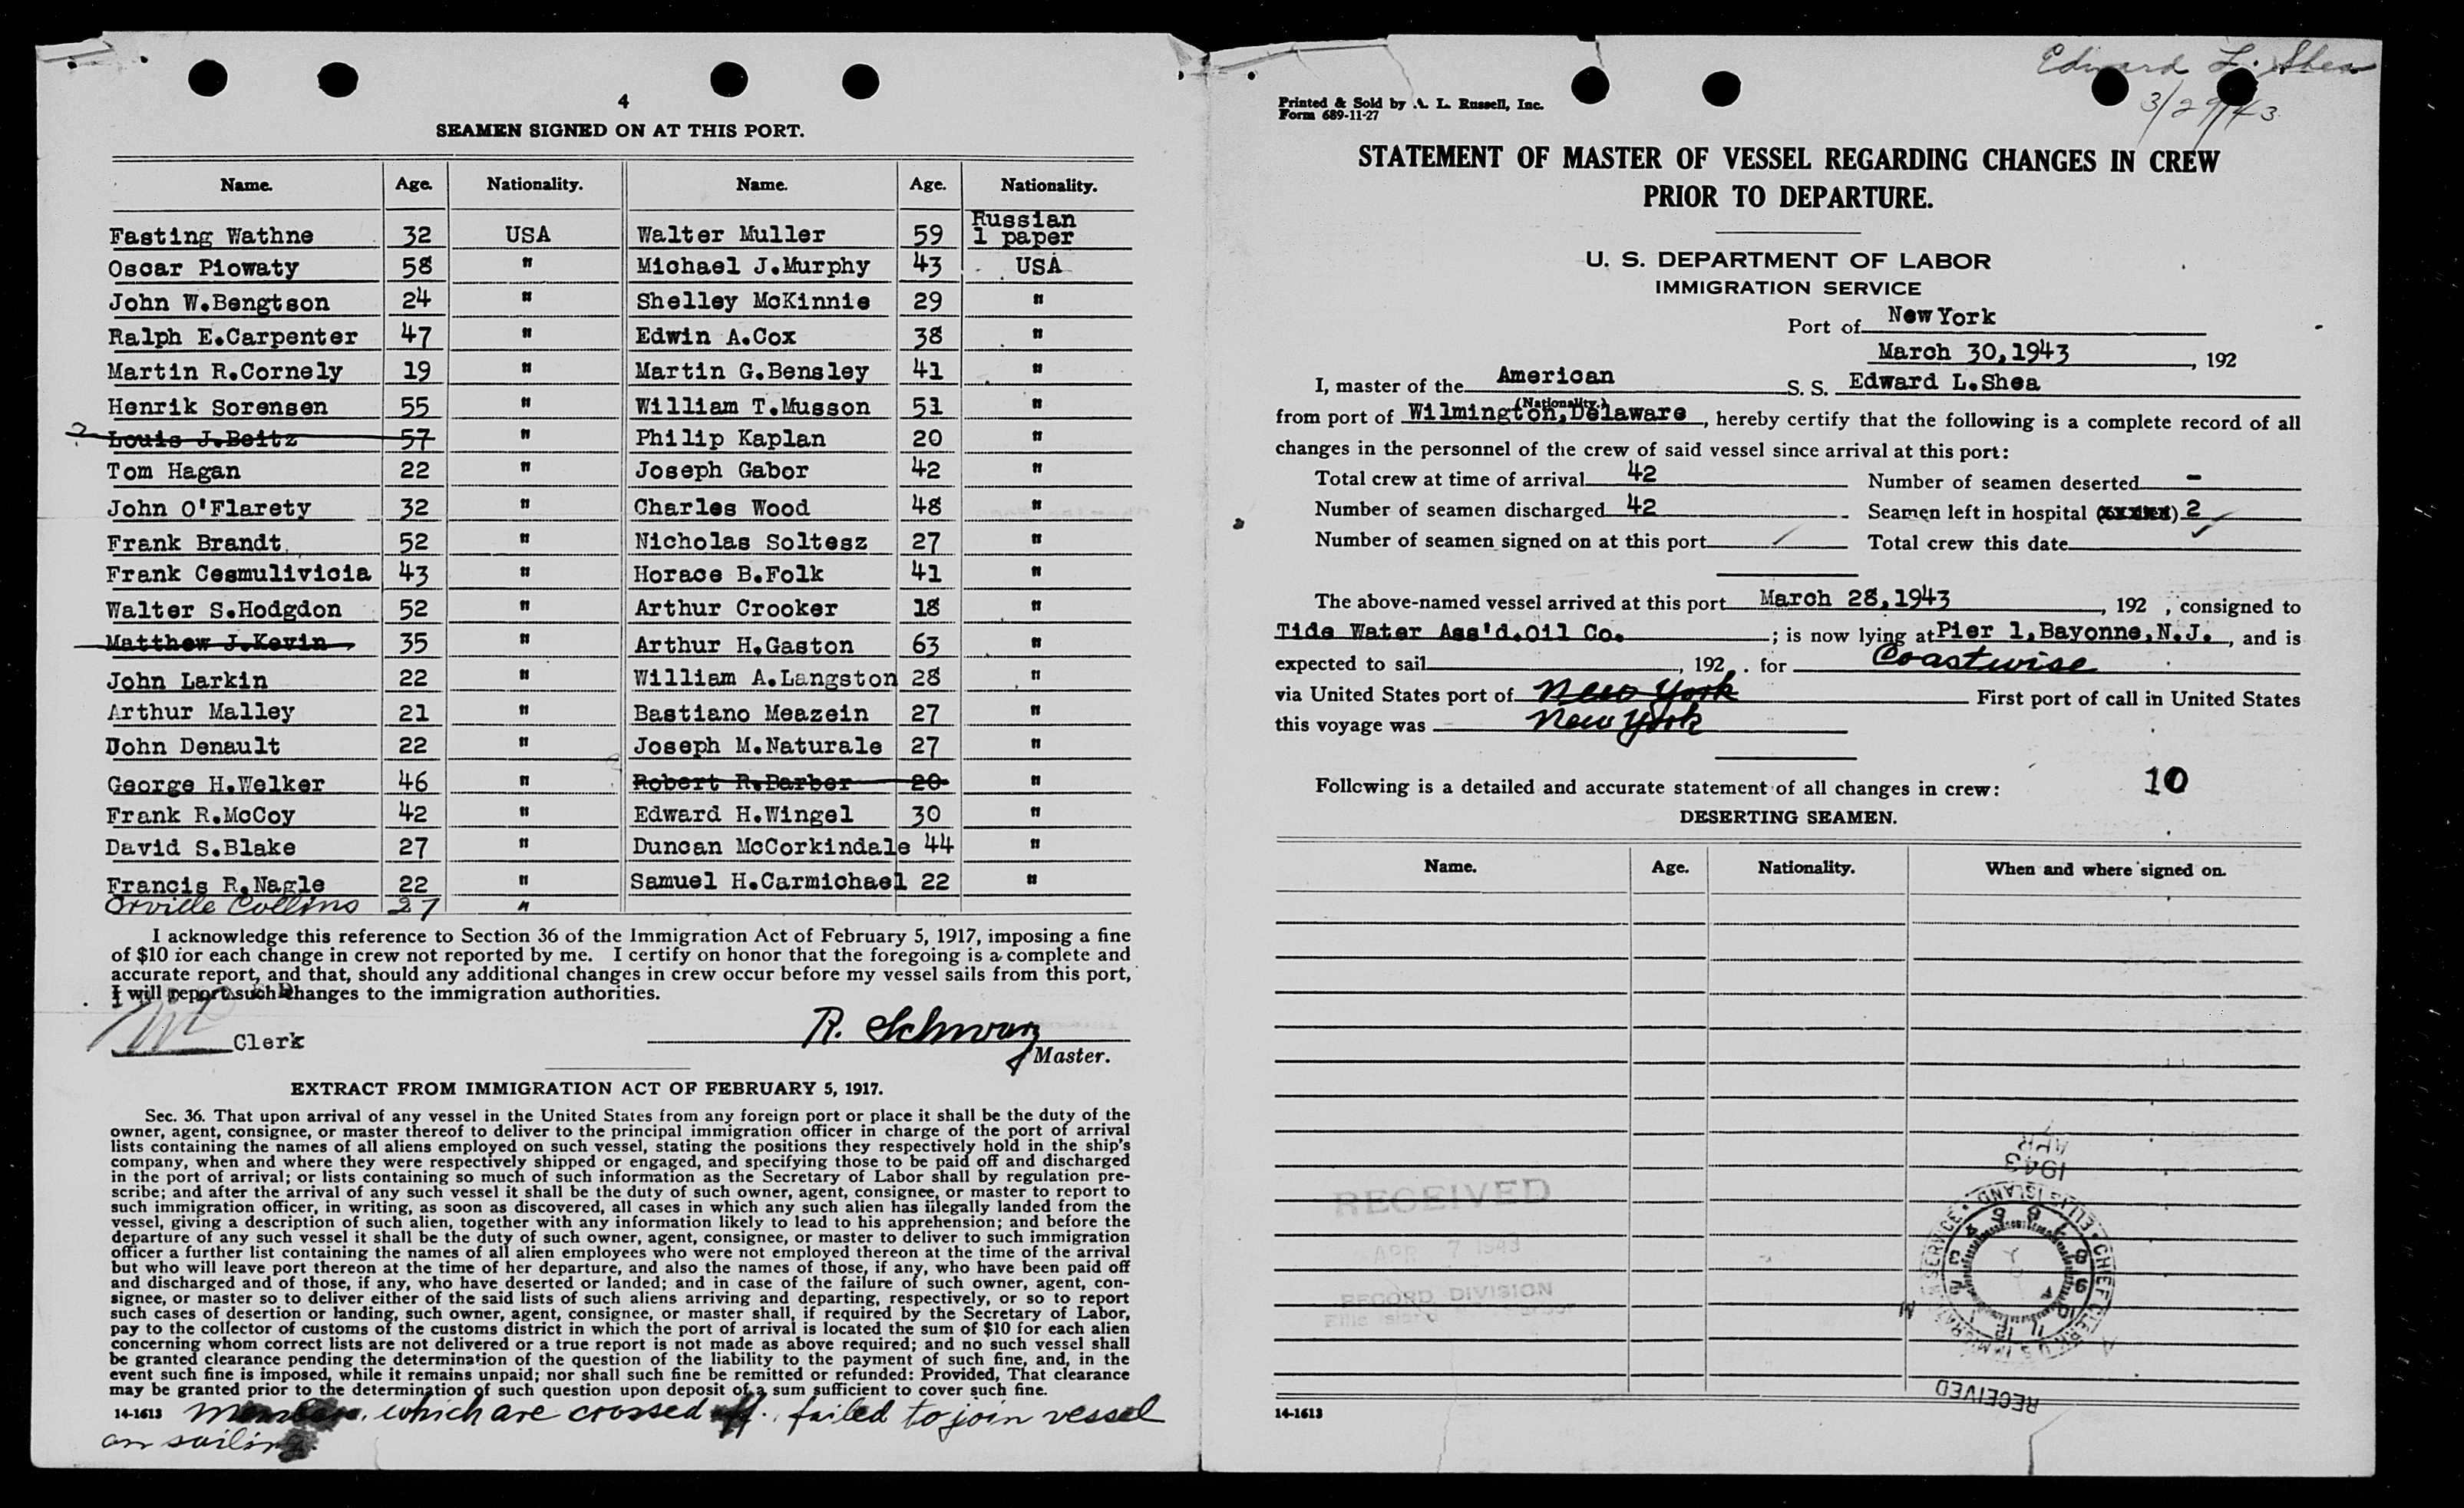 4
SEAMEN SIGNED ON AT THIS PORT.
Name. Age. Nationality. Name. Age. Nationality.
Fasting Wathne 32 USA Walter Muller 59 Russian 1 paper
Oscar Piowaty 58 " Michael J.Murphy 43 USA
John W.Bengtson 24 " Shelley McKinnie 29 "
Ralph E.Carpenter 47 " Edwin A.Cox 38 "
Martin R.Cornely 19 " Martin G.Bensley 41 "
Henrik Sorensen 55 " William T.Musson 51 "
? Louis J.Beitz 57 " Philip Kaplan 20 "
Tom Hagan 22 " Joseph Gabor 42 "
John O'Flarety 32 " Charles Wood 48 "
Frank Brandt 52 " Nicholas Soltesz 27 "
Frank Cesmulivicia 43 " Horace B.Folk 41 "
Walter S.Hodgdon 52 " Arthur Crooker 18 "
Matthew J.Kevin 35 " Arthur H.Gaston 63 "
John Larkin 22 " William A.Langston 28 "
Arthur Malley 21 " Bastiano Meazein 27 "
John Denault 22 " Joseph M.Naturale 27 "
George H.Welker 46 " Robert R.Barber 20 "
Frank R.McCoy 42 " Edward H.Wingel 30 "
David S.Blake 27 " Duncan McCorkindale 44 "
Francis R.Nagle 22 " Samuel H.Carmichael 22 "
Orville Collins 27 "
I acknowledge this reference to Section 36 of the Immigration Act of February 5, 1917, imposing a fine
of $10 for each change in crew not reported by me. I certify on honor that the foregoing is a complete and
accurate report, and that, should any additional changes in crew occur before my vessel sails from this port,
I will report such changes to the immigration authorities.
Clerk
R. Schwarz
Master.
EXTRACT FROM IMMIGRATION ACT OF FEBRUARY 5, 1917.
Sec. 36. That upon arrival of any vessel in the United States from any foreign port or place it shall be the duty of the
owner, agent, consignee, or master thereof to deliver to the principal immigration officer in charge of the port of arrival
lists containing the names of all aliens employed on such vessel, stating the positions they respectively hold in the ship's
company, when and where they were respectively shipped or engaged, and specifying those to be paid off and discharged
in the port of arrival; or lists containing so much of such information as the Secretary of Labor shall by regulation pre-
scribe; and after the arrival of any such vessel it shall be the duty of such owner, agent, consignee, or master to report to
such immigration officer, in writing, as soon as discovered, all cases in which any such alien has illegally landed from the
vessel, giving a description of such alien, together with any information likely to lead to his apprehension; and before the
departure of any such vessel it shall be the duty of such owner, agent, consignee, or master to deliver to such immigration
officer a further list containing the names of all alien employees who were not employed thereon at the time of the arrival
but who will leave port thereon at the time of her departure, and also the names of those, if any, who have been paid off
and discharged and of those, if any, who have deserted or landed; and in case of the failure of such owner, agent, con-
signee, or master so to deliver either of the said lists of such aliens arriving and departing, respectively, or so to report
such cases of desertion or landing, such owner, agent, consignee, or master shall, if required by the Secretary of Labor,
pay to the collector of customs of the customs district in which the port of arrival is located the sum of $10 for each alien
concerning whom correct lists are not delivered or a true report is not made as above required; and no such vessel shall
be granted clearance pending the determination of the question of the liability to the payment of such fine, and, in the
event such fine is imposed, while it remains unpaid; nor shall such fine be remitted or refunded: Provided, That clearance
may be granted prior to the determination of such question upon deposit of a sum sufficient to cover such fine.
14-1613
Members, which are crossed off, failed to join vessel
on sailing.
Edward L. Shea
3/29/43
Printed & Sold by A. L. Russell, Inc.
Form 689-11-27
STATEMENT OF MASTER OF VESSEL REGARDING CHANGES IN CREW
PRIOR TO DEPARTURE.
U. S. DEPARTMENT OF LABOR
IMMIGRATION SERVICE
Port of New York
March 30,1943, 192
I, master of the American S. S. Edward L.Shea
(Nationality.)
from port of Wilmington,Delaware, hereby certify that the following is a complete record of all
changes in the personnel of the crew of said vessel since arrival at this port:
Total crew at time of arrival 42 Number of seamen deserted -
Number of seamen discharged 42 Seamen left in hospital (xxxxx) 2
Number of seamen signed on at this port Total crew this date
The above-named vessel arrived at this port March 28,1943, 192 , consigned to
Tide Water Ass'd.Oil Co. ; is now lying at Pier 1,Bayonne,N.J., and is
expected to sail , 192 . for Coastwise
via United States port of New York First port of call in United States
this voyage was New York
Following is a detailed and accurate statement of all changes in crew: 10
DESERTING SEAMEN.
Name. Age. Nationality. When and where signed on.
RECEIVED
APR 7 1943
RECORD DIVISION
Ellis Island
APR
1943
CHIEF CLERK U.S. IMMIGRATION SERVICE ELLIS ISLAND
RECEIVED
14-1613